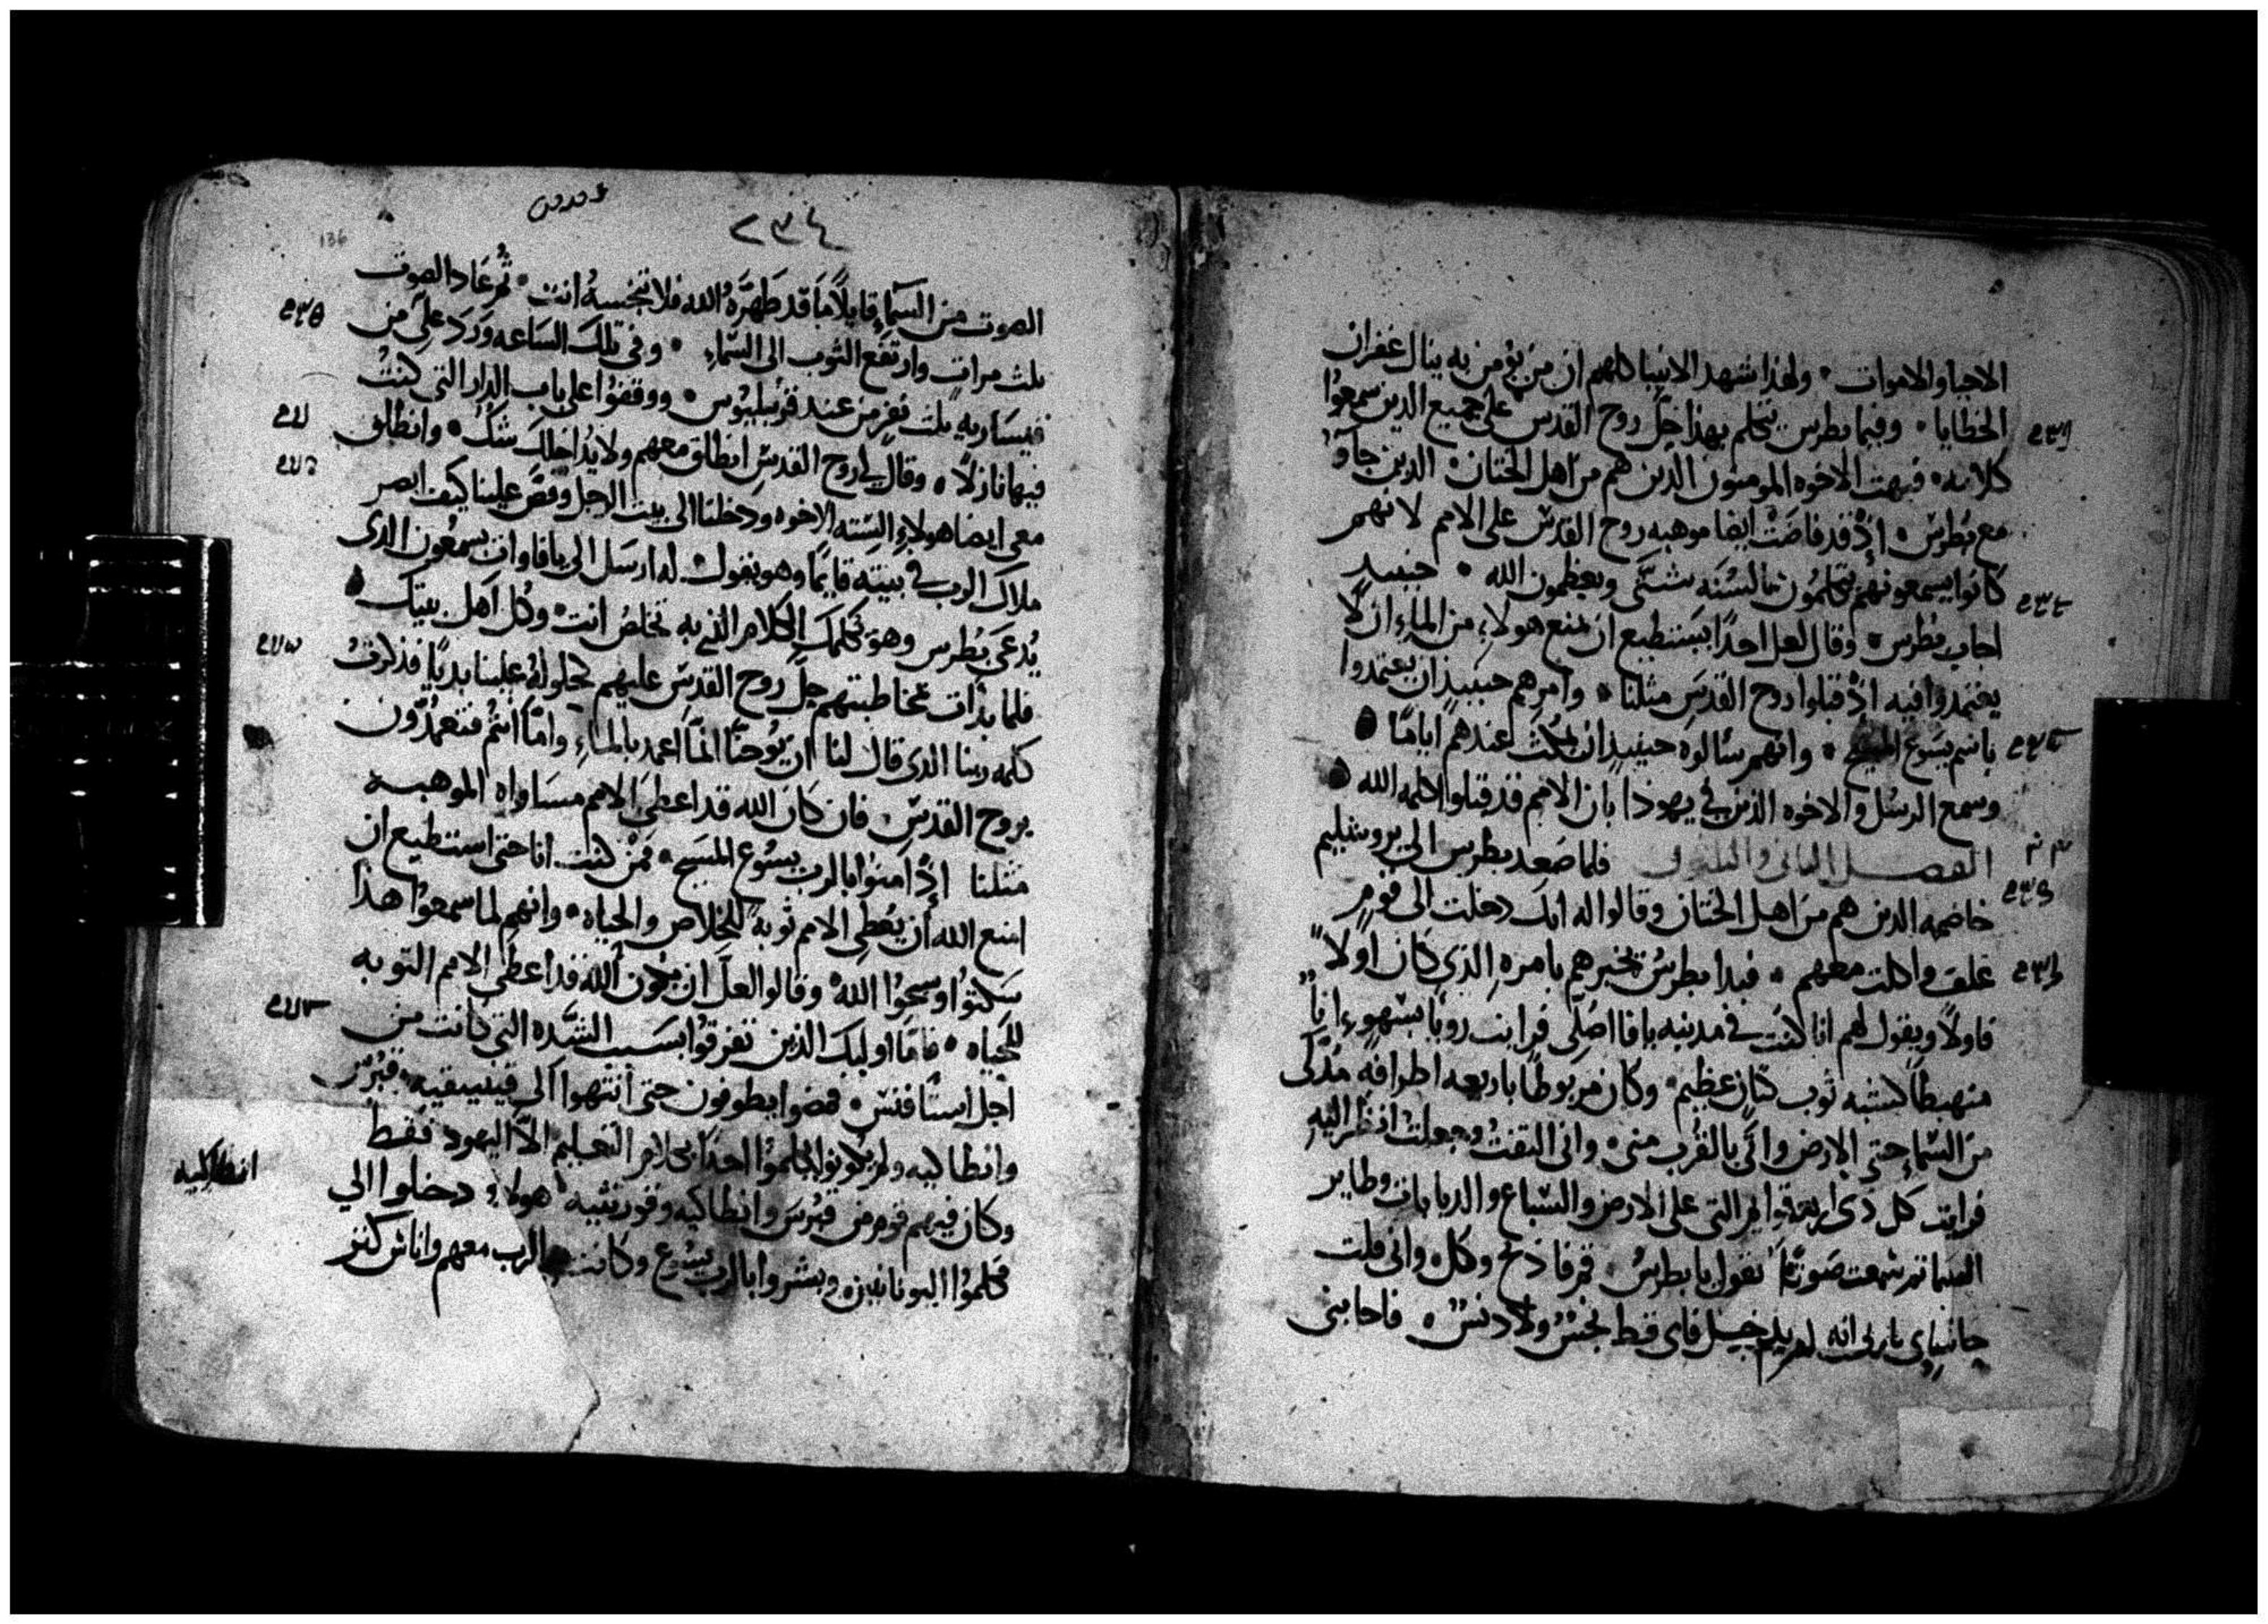 الاحيا والاموات • ولهذا شهد الانبيا كلهم ان من يؤمن به ينال غفران
الخطايا • وفيما بطرس يتكلم بهذا حل روح القدس على جميع الدين سمعوا
كلامه • فبهت الاخوه المومنون الدين هم من اهل الختان • الدين جآوا
مع بطرس • اذ قد فاضت ايضا موهبه روح القدس على الامم لانهم
كانوا يسمعونهم يتكلمون بالسنه شتى ويعظمون الله • حينيد
اجاب بطرس • وقال لعل احدا يستطيع ان يمنع هولاء من الماء ان لا
يعتمدوا فيه اذ قبلوا روح القدس مثلنا • وامرهم حينيذ ان يعتمدوا
باسم يسوع المسيح • وانهم سالوه حينيذ ان يمكث عندهم اياما
وسمع الرسل والاخوه الذين في يهودا بان الامم قد قبلوا كلمه الله
الفصل الثاني والثلثون فلما صعد بطرس الى يروشليم
خاصمه الدين هم من اهل الختان وقالوا له انك دخلت الى قوم
غلف واكلت معهم • فبدا بطرس يخبرهم بامره الذي كان اولا
فاولا ويقول لهم انا كنت في مدينه يافا اصلى فرايت رويا بسهو اناً
منهبطا كشبه ثوب كتان عظيم • وكان مربوطا باربعه اطرافه مدلى
من السماء حتى الارض واتى بالقرب منى • وانى التفت وجعلت انظر اليه
فرايت كل ذى اربعه قوايم التى على الارض والسباع والدبابات وطاير
السما ثم سمعت صوتا يقول يا بطرس قم فاذبح وكل • وانى قلت
حاشاى يا رب انه لم يدخل فاى قط نجس ولا دنس • فاجابنى
٢٣٤
136
الصوت من السماء قايلا ما قد طهره الله فلا تنجسه انت • ثم عاد الصوت
ثلث مرات وارتفع الثوب الى السماء • وفى تلك الساعه ورد على من
قيساريه ثلث نفر من عند قرنيليوس • ووقفوا على باب الدار التى كنت
فيها نازلا • وقال لى روح القدس انطلق معهم ولا يداخلك شك • وانطلق
معى ايضا هولاء السته الاخوه ودخلنا الى بيت الرجل وقص علينا كيف ابصر
ملاك الرب في بيته قايما وهو يقول له ارسل الى يافا وات بسمعون الدى
يدعى بطرس وهو يكلمك الكلام الذى به تخلص انت • وكل اهل بيتك
فلما بدات مخاطبتهم حل روح القدس عليهم كحلوله علينا بديا فذكرت
كلمه ربنا الدى قال لنا ان يوحنا انما اعمد بالماء • واما انتم فتتعمدون
بروح القدس • فان كان الله قد اعطى الامم مساواه الموهبه
مثلنا اذ امنوا بالرب يسوع المسيح • فمن كنت انا حتى استطيع ان
امنع الله ان يعطى الامم توبه للخلاص والحياه • وانهم لما سمعوا هذا
سكتوا وسبحوا الله وقالوا لعل ان يكون الله قد اعطى الامم التوبه
للحياه • فاما اوليك الذين تفرقوا بسبب الشده التى كانت من
اجل استافنس • فمضوا يطوفون حتى انتهوا الى فينيقيه وقبرس
وانطاكيه ولم يكونوا يكلموا احدا بكلام التعليم الا اليهود فقط
وكان فيهم قوم من قبرس وانطاكيه وقورنثيه هولاء دخلوا الي
انطاكيه
فكلموا اليونانيين وبشروا بالرب يسوع وكانت الرب معهم واناس كثير